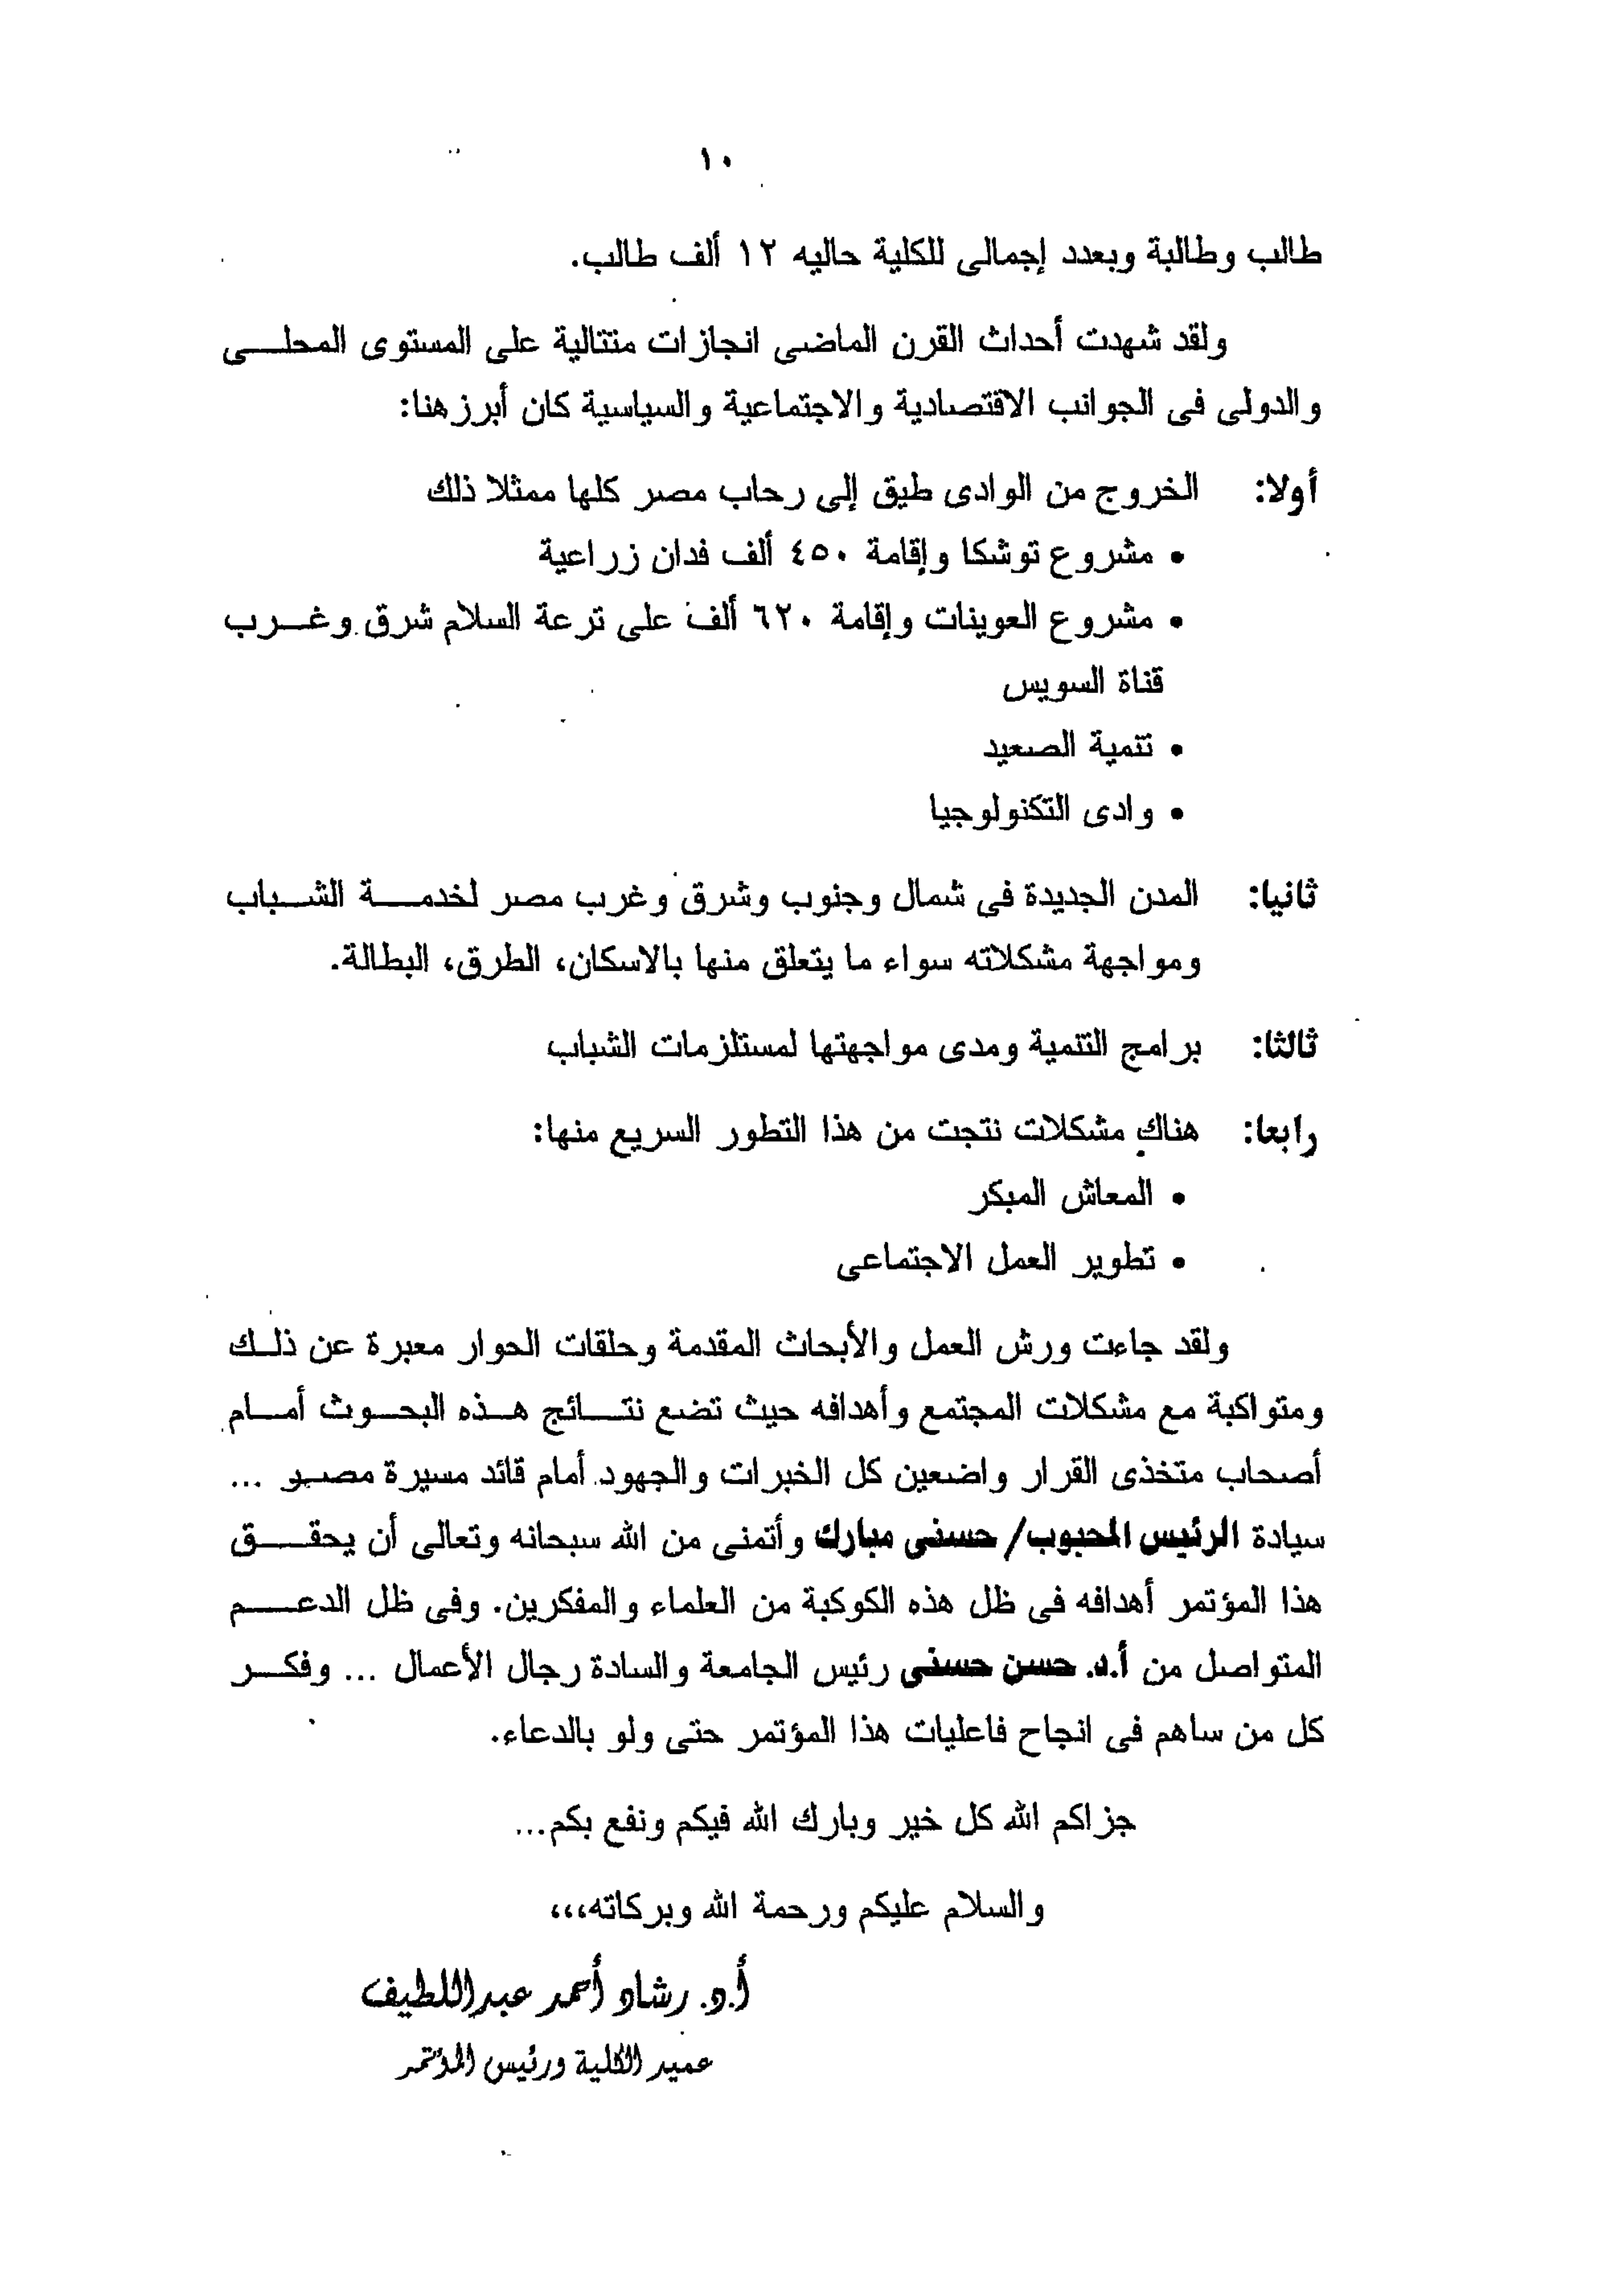 ١٠
طالب وطالبة وبعدد إجمالى للكلية حاليه ١٢ ألف طالب.
ولقد شهدت أحداث القرن الماضى انجازات متتالية على المستوى المحلى
والدولى فى الجوانب الاقتصادية والاجتماعية والسياسية كان أبرزهنا:
أولا: الخروج من الوادى طيق إلى رحاب مصر كلها ممثلا ذلك
• مشروع توشكا وإقامة ٤٥٠ ألف فدان زراعية
• مشروع العوينات وإقامة ٦٢٠ ألف على ترعة السلام شرق وغرب
قناة السويس
• تتمية الصعيد
• وادى التكنولوجيا
ثانيا: المدن الجديدة فى شمال وجنوب وشرق وغرب مصر لخدمة الشباب
ومواجهة مشكلاته سواء ما يتعلق منها بالاسكان، الطرق، البطالة.
ثالثا: برامج التتمية ومدى مواجهتها لمستلزمات الشباب
رابعا: هناك مشكلات نتجت من هذا التطور السريع منها:
• المعاش المبكر
• تطوير العمل الاجتماعى
ولقد جاءت ورش العمل والأبحاث المقدمة وحلقات الحوار معبرة عن ذلك
ومتواكبة مع مشكلات المجتمع وأهدافه حيث تضع نتائج هذه البحوث أمام
أصحاب متخذى القرار واضعين كل الخبرات والجهود أمام قائد مسيرة مصر ...
سيادة الرئيس المحبوب/ حسنى مبارك وأتمنى من الله سبحانه وتعالى أن يحقق
هذا المؤتمر أهدافه فى ظل هذه الكوكبة من العلماء والمفكرين. وفى ظل الدعم
المتواصل من أ.د. حسن حسنى رئيس الجامعة والسادة رجال الأعمال ... وفكر
كل من ساهم فى انجاح فاعليات هذا المؤتمر حتى ولو بالدعاء.
جزاكم الله كل خير وبارك الله فيكم ونفع بكم...
والسلام عليكم ورحمة الله وبركاته،،،
أ.د. رشاد أحمد عبداللطيف
عميد الكلية ورئيس المؤتمر